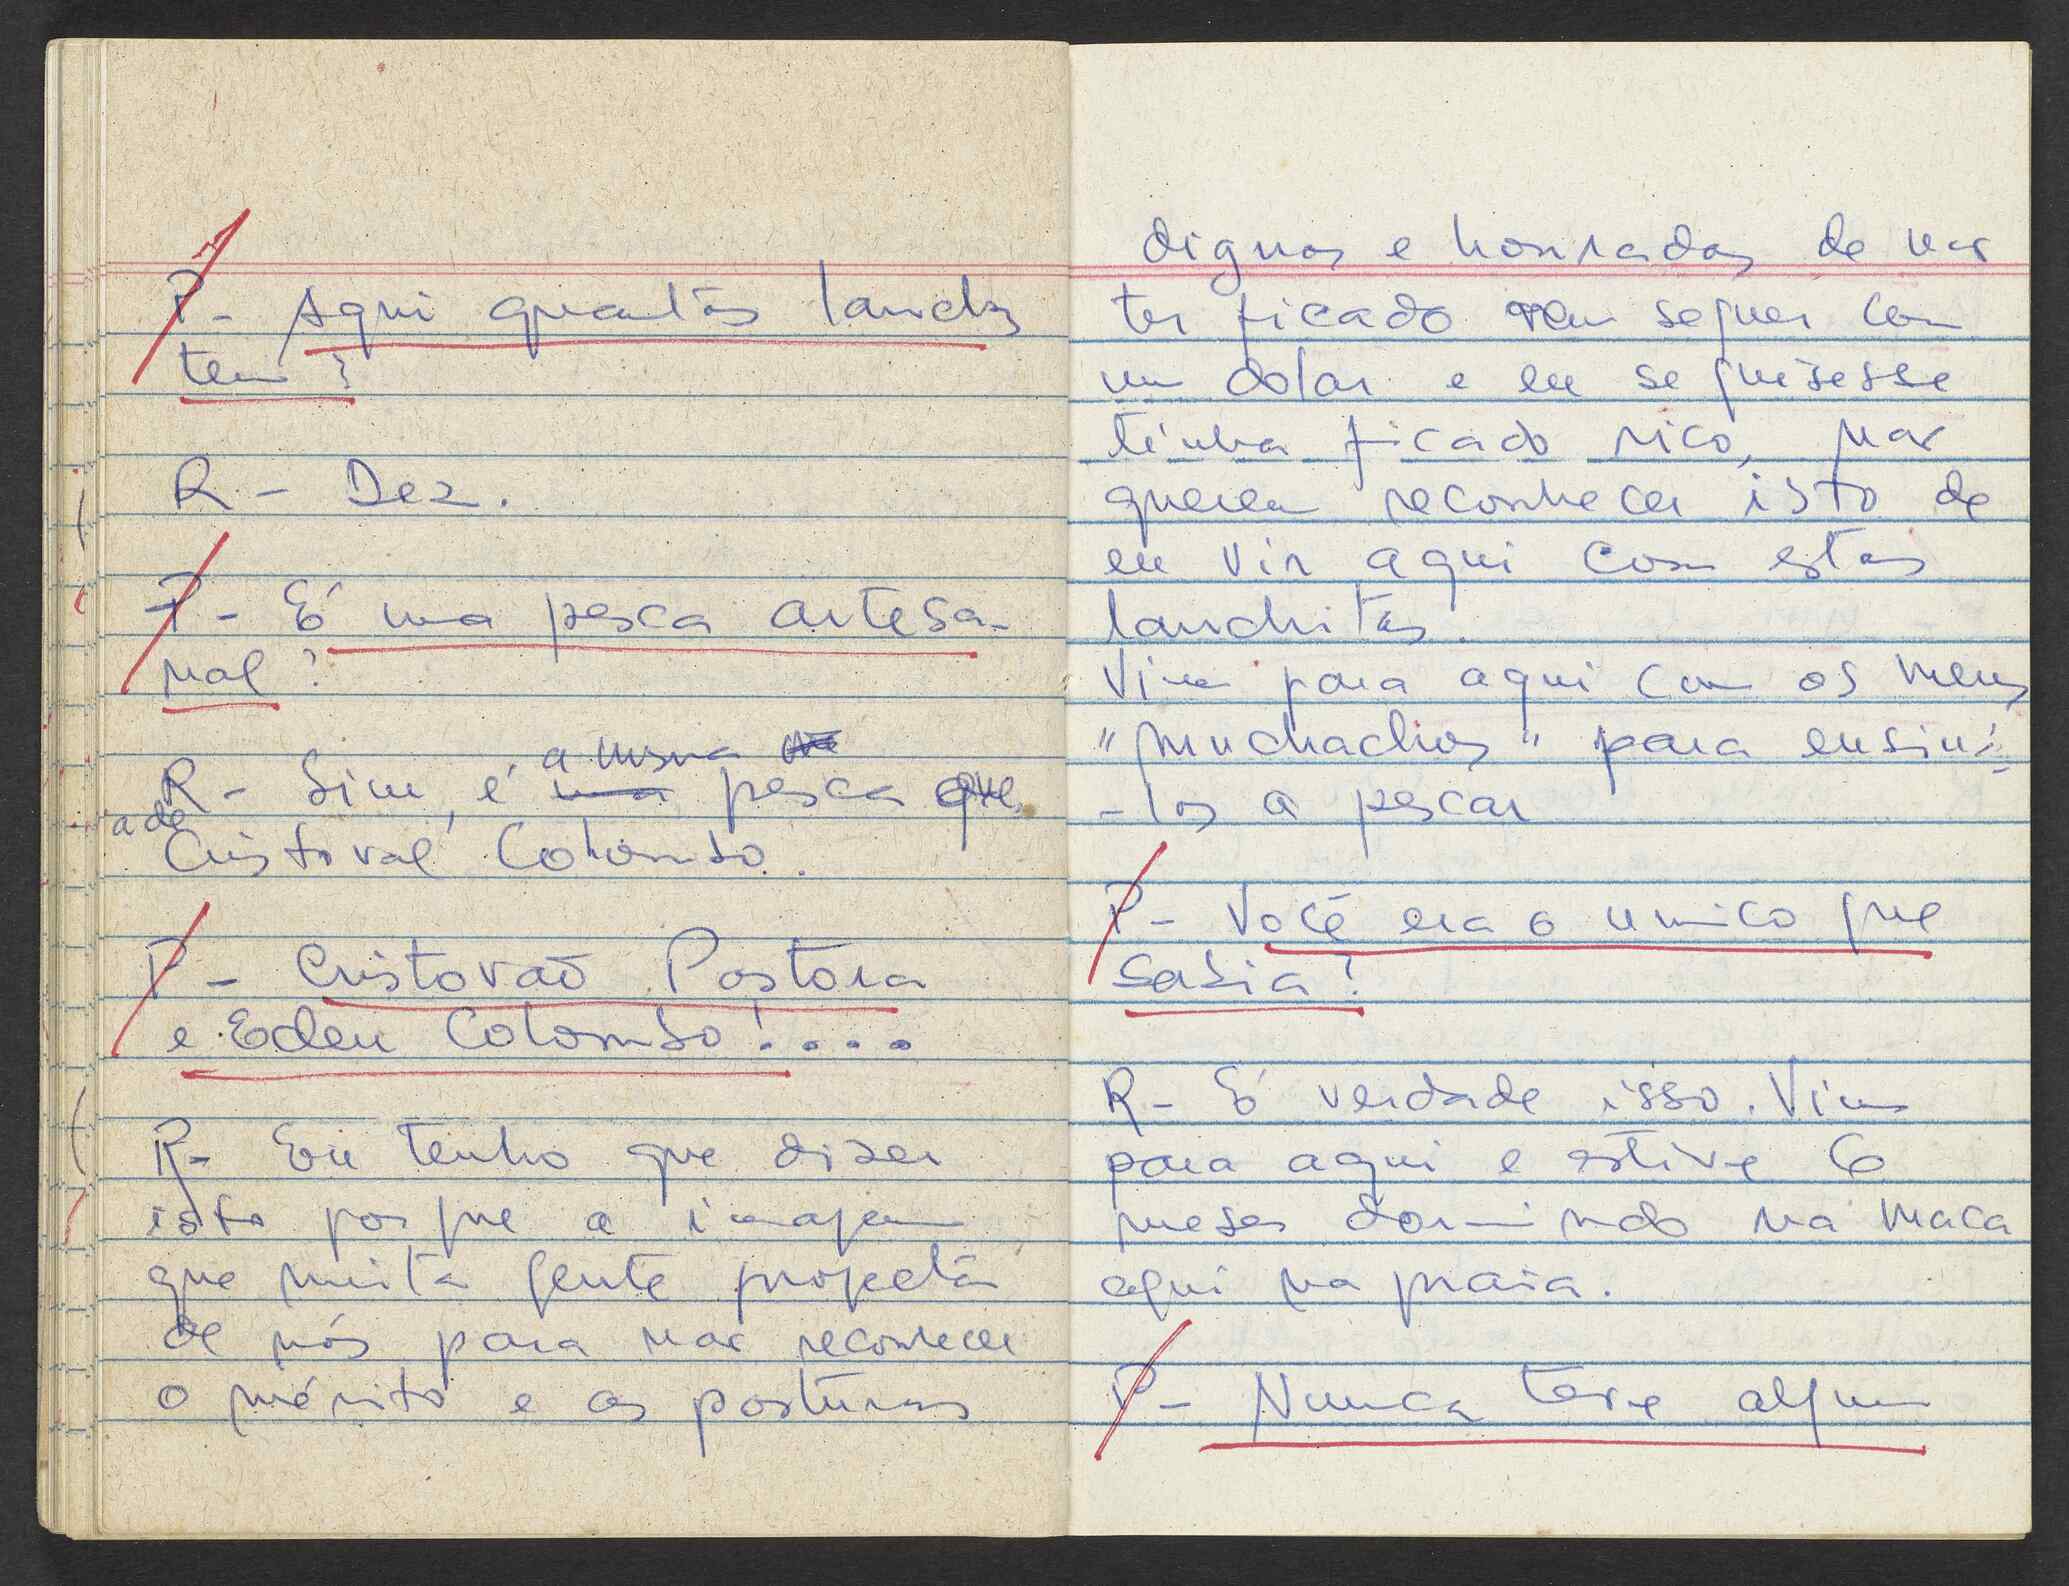 P- Aqui quantas lanchas
tem?
R- Dez.
P- É uma pesca artesa-
nal?
R- Sim, é a mesma pesca que
a de
Cristoval Colombo.
P- Cristovão Pastora
e Eden Colombo!....
R- Eu tenho que dizer
isto porque a imagem
que muita gente projecta
de nós para nao reconhecer
o mérito e as posturas
dignas e honradas de nao
ter ficado nem sequer com
um dolar e eu se quisesse
tinha ficado rico, nao
querem reconhecer isto de
eu vir aqui com estas
lanchitas.
Vim para aqui com os meus
"muchachos" para ensiná-
-los a pescar
P- Você era o unico que
sabia?
R- É verdade isso. Vim
para aqui e estive 6
meses dormindo na maca
aqui na praia.
P- Nunca teve algum